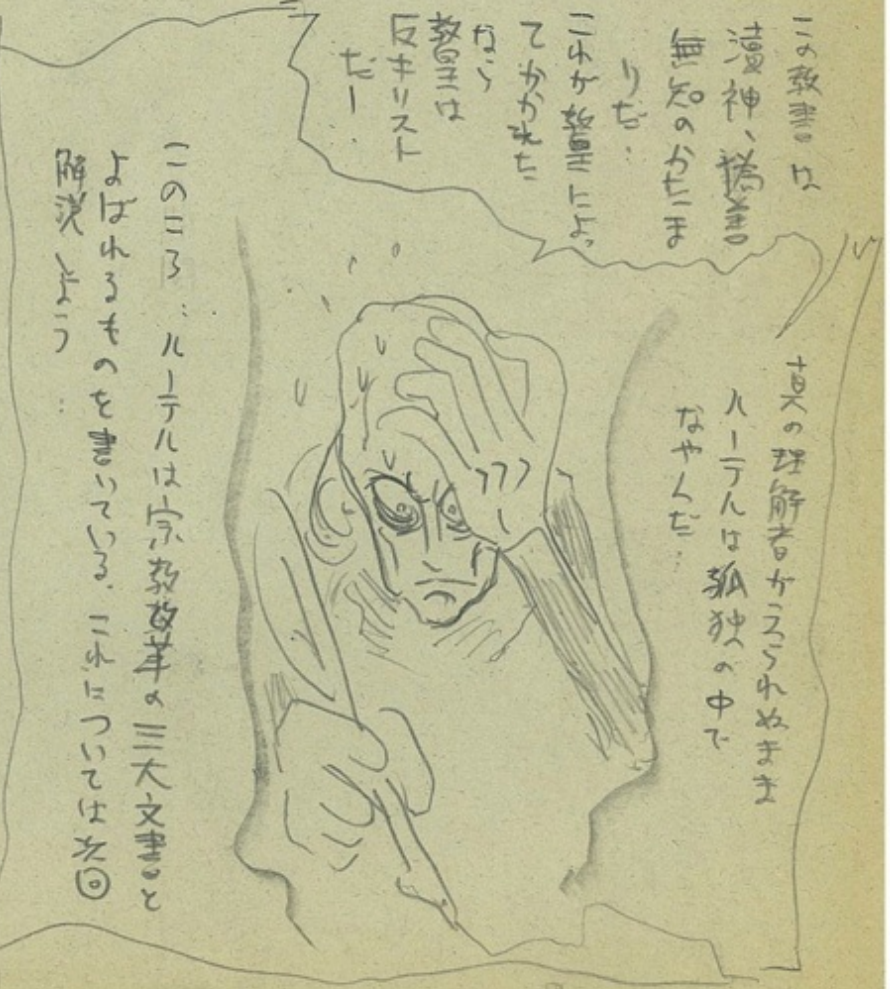 この教書は
瀆神、偽善
無知のかたま
りだ…
これが教皇によっ
てかかれた
なら
教皇は
反キリスト
だー
真の理解者がえられぬまま
ルーテルは孤独の中で
なやんだ…
このころ…ルーテルは宗教改革の三大文書と
よばれるものを書いている。これについては次回
解説しよう…